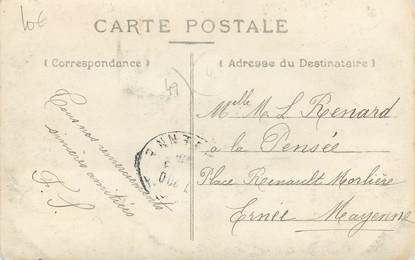 10€
CARTE POSTALE
( Correspondance )
( Adresse du Destinataire )
Tous nos remerciements
sincères amitiés
F. S.
Melle M. L. Renard
à la Pensée
Place Renault Morlière
Ernée Mayenne